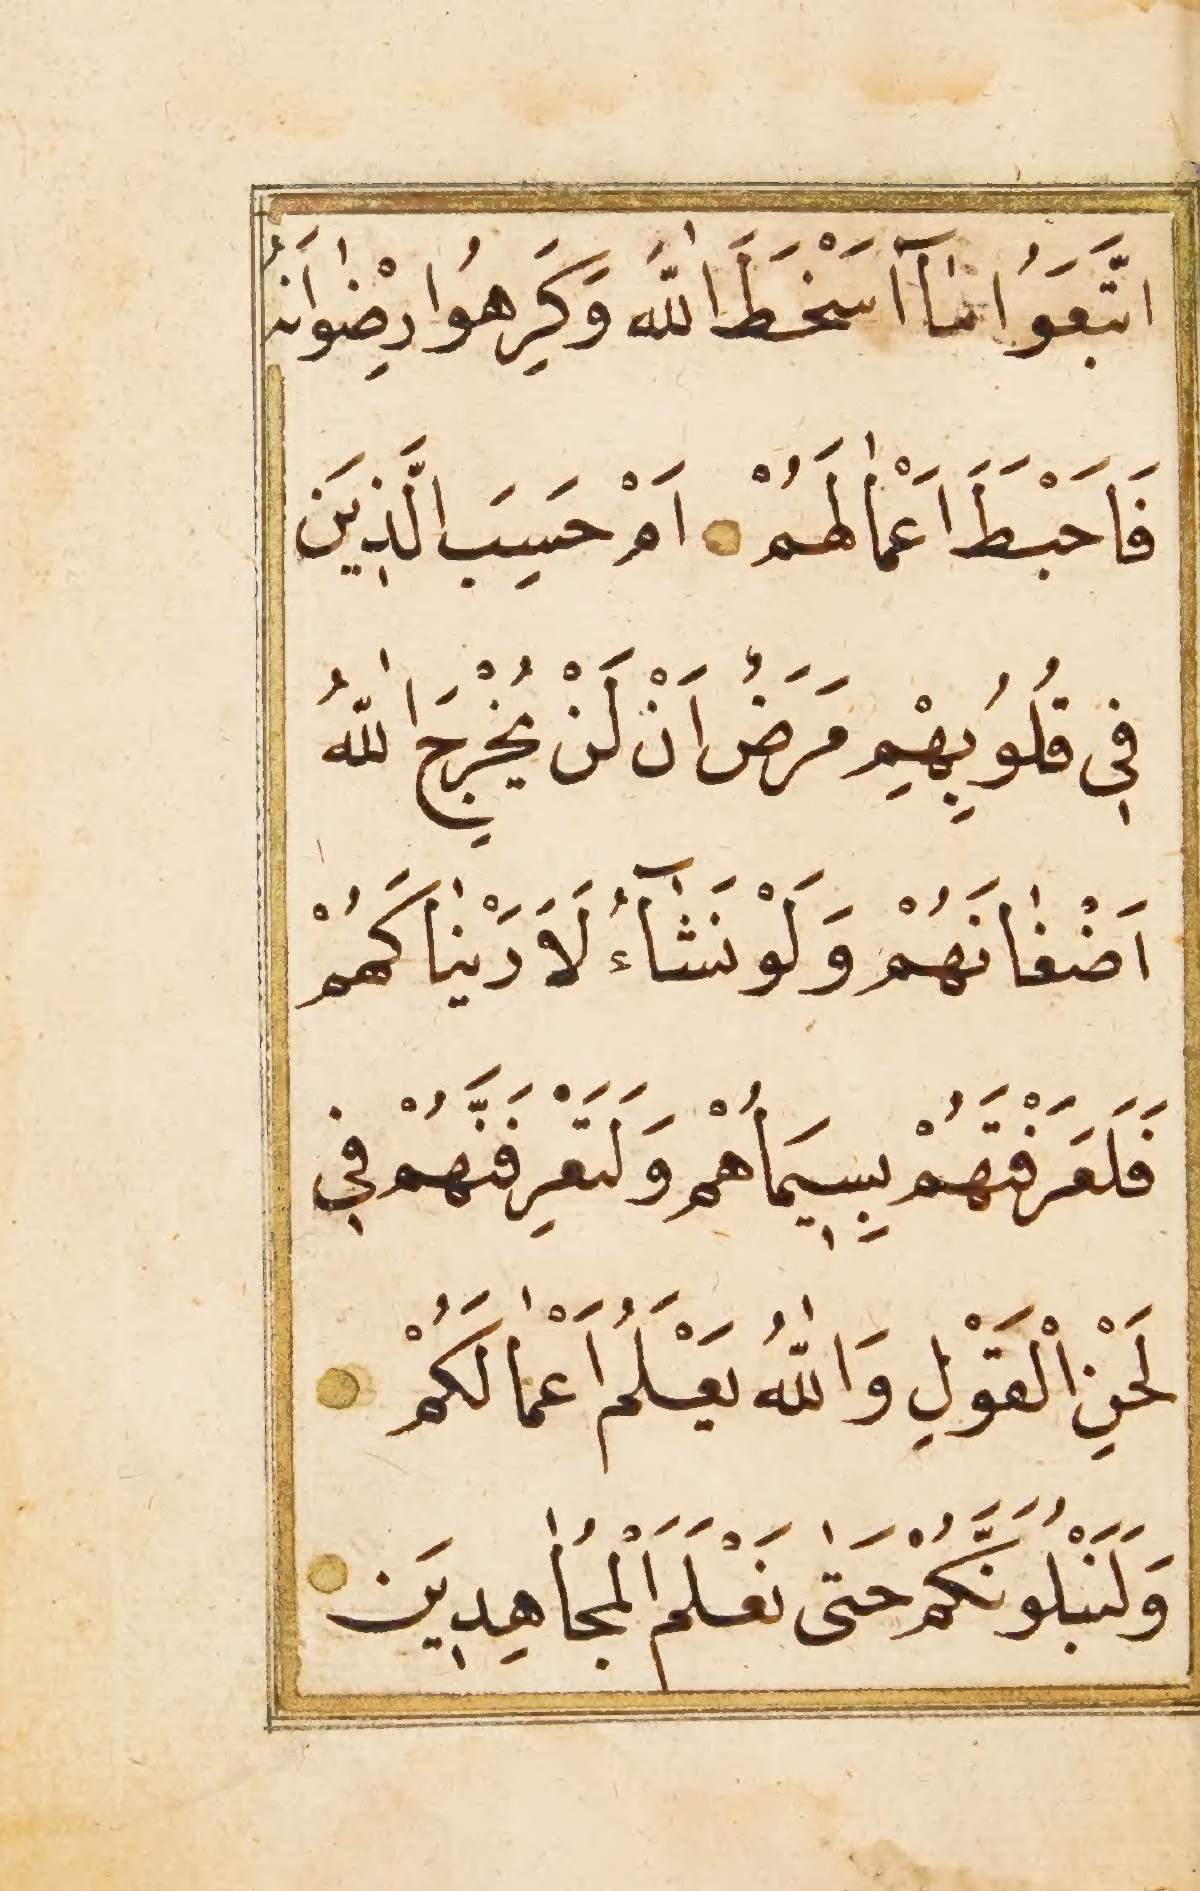 اتَّبَعَوُا مٰآ اَسْخَطَ اللّٰهَ وَكَرِهُوا رِضْوٰانَهُ
فَاَحْبَطَ اَعْمٰالَهُمْ اَمْ حَسِبَ الَّذِينَ
فِي قُلُوبِهِمْ مَرَضٌ اَنْ لَنْ يُخْرِجَ اللّٰهُ
اَضْغٰانَهُمْ وَلَوْ نَشٰآءُ لَاَرَيْنٰاكَهُمْ
فَلَعَرَفْتَهُمْ بِسِيمَاهُمْ وَلَتَعْرِفَنَّهُمْ فِي
لَحْنِ الْقَوْلِ وَاللّٰهُ يَعْلَمُ اَعْمٰالَكُمْ
وَلَنَبْلُوَنَّكُمْ حَتّٰى نَعْلَمَ الْمُجٰاهِدِينَ